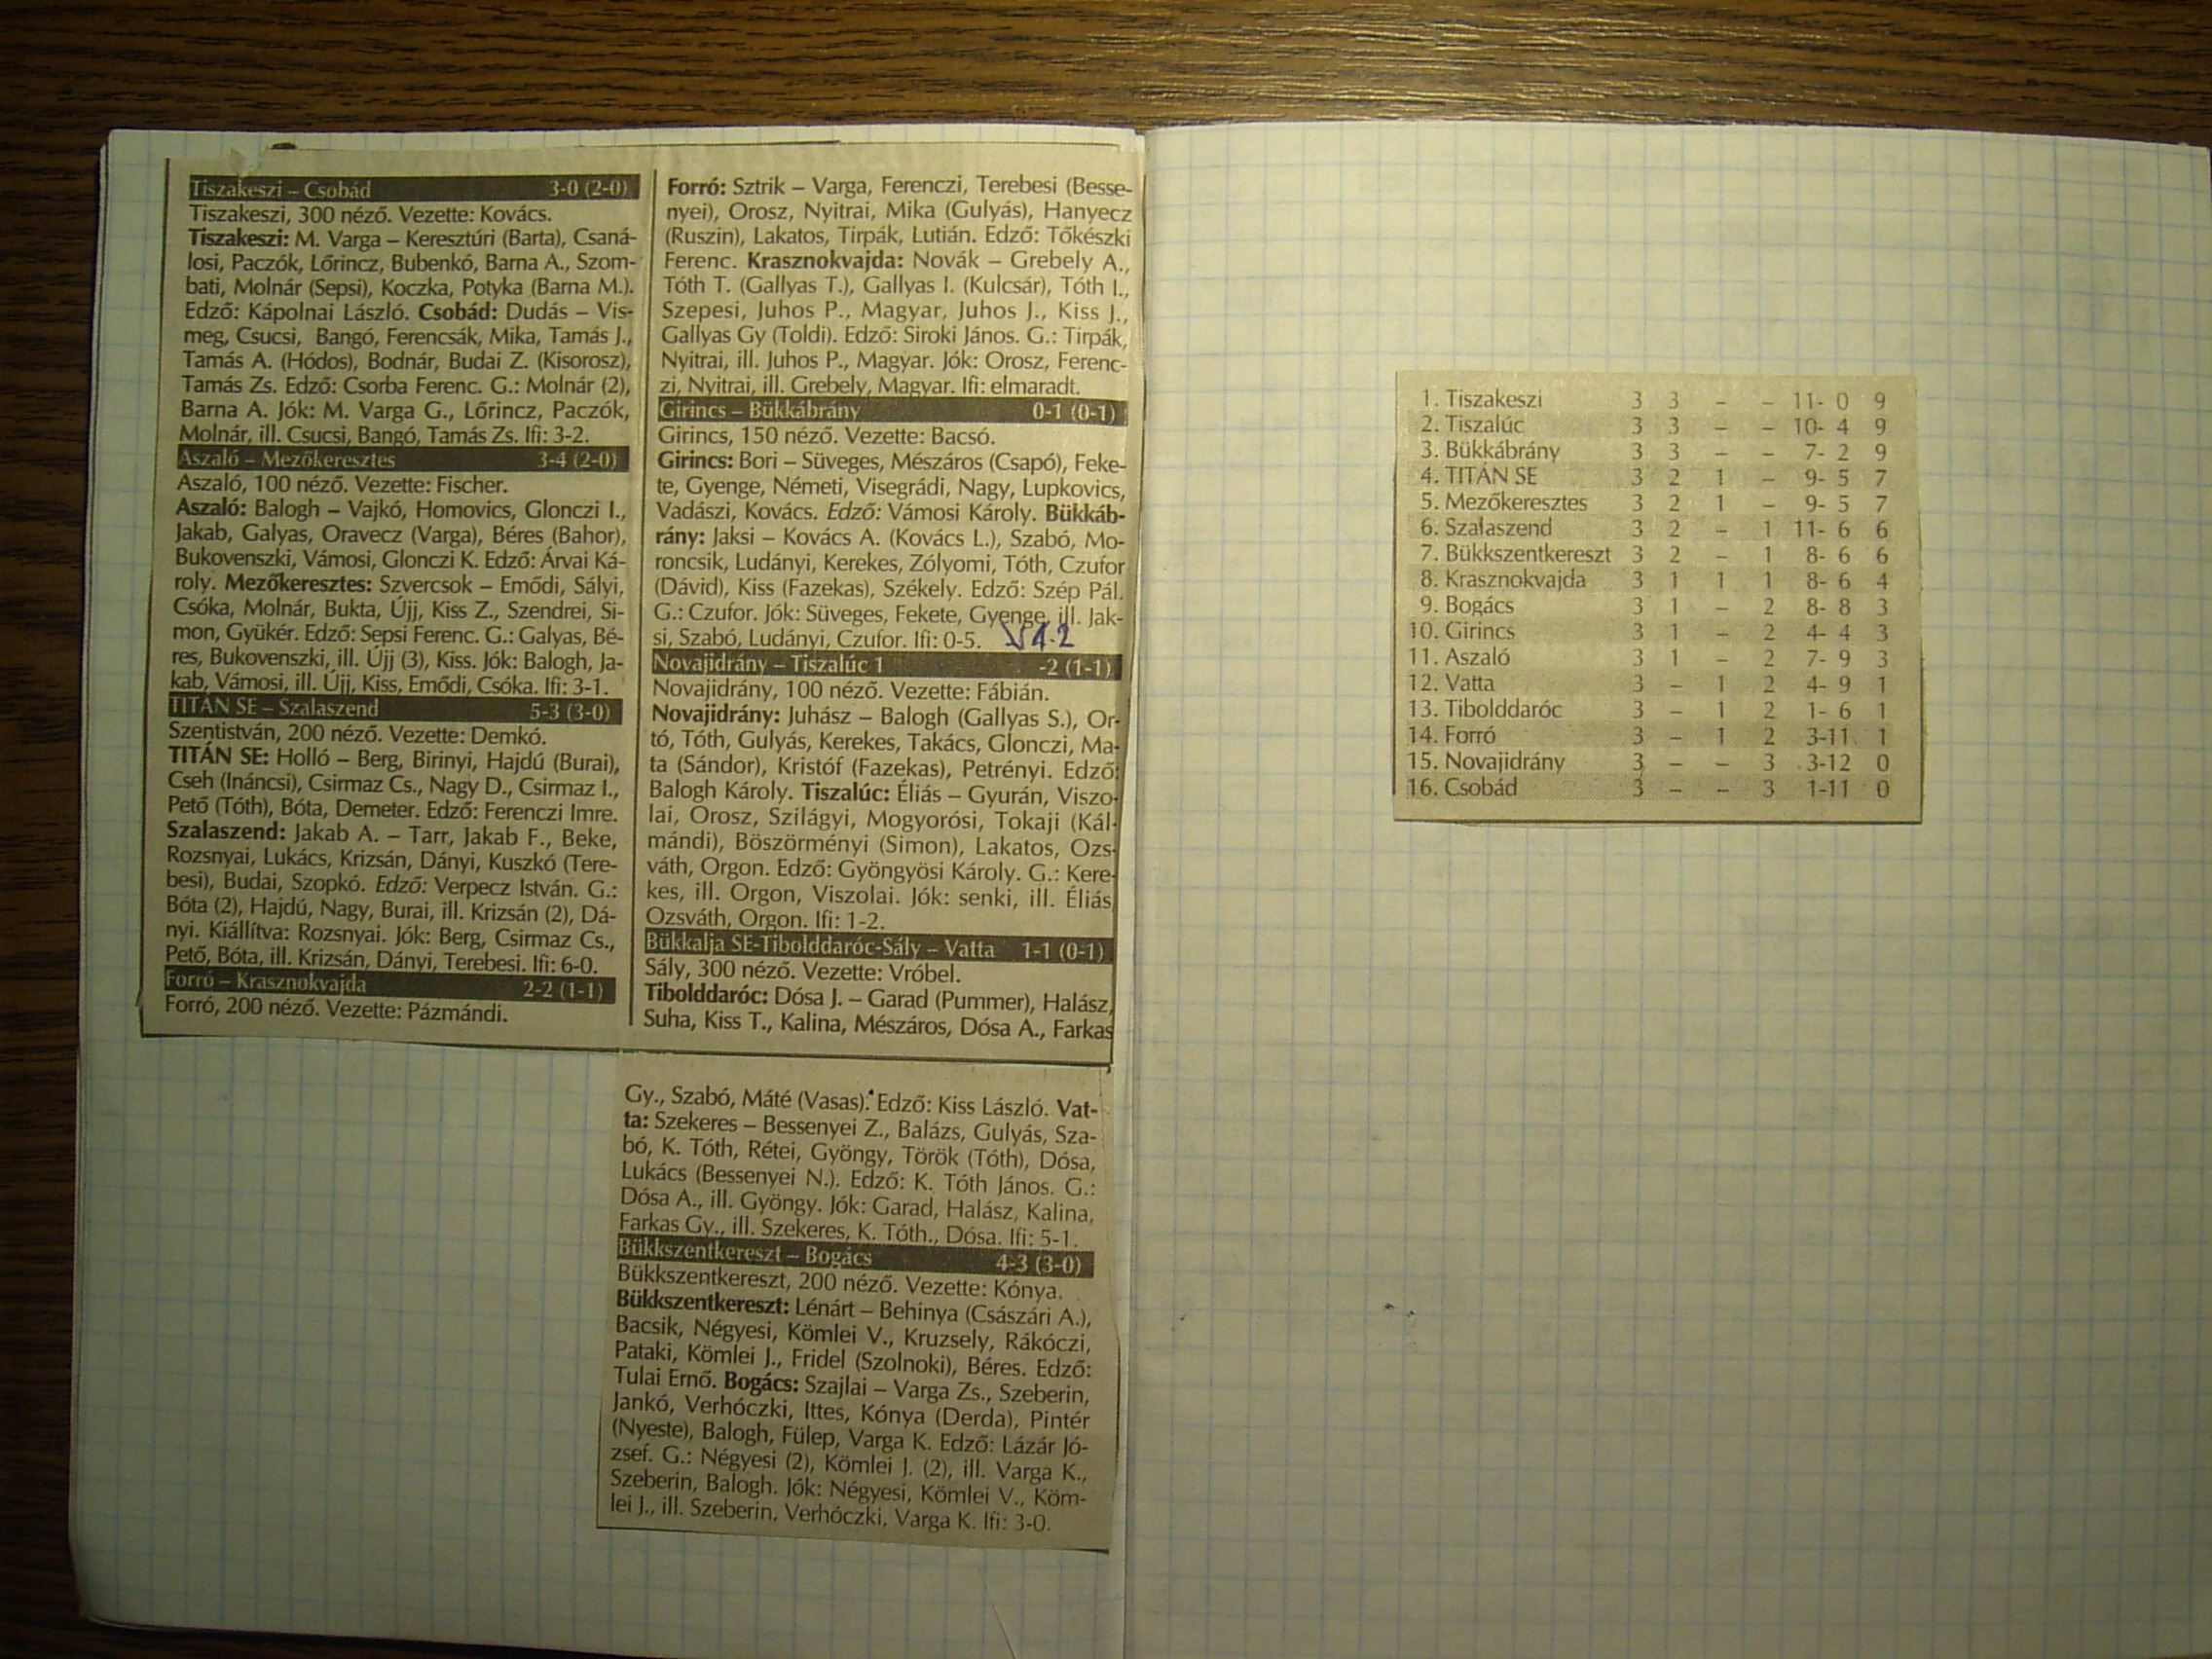 Tiszakeszi – Csobád 3-0 (2-0)
Tiszakeszi, 300 néző. Vezette: Kovács.
Tiszakeszi: M. Varga – Keresztúri (Barta), Csaná-
losi, Paczók, Lőrincz, Bubenkó, Barna A., Szom-
bati, Molnár (Sepsi), Koczka, Potyka (Barna M.).
Edző: Kápolnai László. Csobád: Dudás – Vis-
meg, Csucsi, Bangó, Ferencsák, Mika, Tamás J.,
Tamás A. (Hódos), Bodnár, Budai Z. (Kisorosz),
Tamás Zs. Edző: Csorba Ferenc. G.: Molnár (2),
Barna A. Jók: M. Varga G., Lőrincz, Paczók,
Molnár, ill. Csucsi, Bangó, Tamás Zs. Ifi: 3-2.
Aszaló – Mezőkeresztes 3-4 (2-0)
Aszaló, 100 néző. Vezette: Fischer.
Aszaló: Balogh – Vajkó, Homovics, Glonczi I.,
Jakab, Galyas, Oravecz (Varga), Béres (Bahor),
Bukovenszki, Vámosi, Glonczi K. Edző: Árvai Ká-
roly. Mezőkeresztes: Szvercsok – Emődi, Sályi,
Csóka, Molnár, Bukta, Újj, Kiss Z., Szendrei, Si-
mon, Gyükér. Edző: Sepsi Ferenc. G.: Galyas, Bé-
res, Bukovenszki, ill. Újj (3), Kiss. Jók: Balogh, Ja-
kab, Vámosi, ill. Újj, Kiss, Emődi, Csóka. Ifi: 3-1.
TITÁN SE – Szalaszend 5-3 (3-0)
Szentistván, 200 néző. Vezette: Demkó.
TITÁN SE: Holló – Berg, Birinyi, Hajdú (Burai),
Cseh (Ináncsi), Csirmaz Cs., Nagy D., Csirmaz I.,
Pető (Tóth), Bóta, Demeter. Edző: Ferenczi Imre.
Szalaszend: Jakab A. – Tarr, Jakab F., Beke,
Rozsnyai, Lukács, Krizsán, Dányi, Kuszkó (Tere-
besi), Budai, Szopkó. Edző: Verpecz István. G.:
Bóta (2), Hajdú, Nagy, Burai, ill. Krizsán (2), Dá-
nyi. Kiállítva: Rozsnyai. Jók: Berg, Csirmaz Cs.,
Pető, Bóta, ill. Krizsán, Dányi, Terebesi. Ifi: 6-0.
Forró – Krasznokvajda 2-2 (1-1)
Forró, 200 néző. Vezette: Pázmándi.
Forró: Sztrik – Varga, Ferenczi, Terebesi (Besse-
nyei), Orosz, Nyitrai, Mika (Gulyás), Hanyecz
(Ruszin), Lakatos, Tirpák, Lutián. Edző: Tőkészki
Ferenc. Krasznokvajda: Novák – Grebely A.,
Tóth T. (Gallyas T.), Gallyas I. (Kulcsár), Tóth I.,
Szepesi, Juhos P., Magyar, Juhos J., Kiss J.,
Gallyas Gy (Toldi). Edző: Siroki János. G.: Tirpák,
Nyitrai, ill. Juhos P., Magyar. Jók: Orosz, Ferenc-
zi, Nyitrai, ill. Grebely, Magyar. Ifi: elmaradt.
Girincs – Bükkábrány 0-1 (0-1)
Girincs, 150 néző. Vezette: Bacsó.
Girincs: Bori – Süveges, Mészáros (Csapó), Feke-
te, Gyenge, Németi, Visegrádi, Nagy, Lupkovics,
Vadászi, Kovács. Edző: Vámosi Károly. Bükkáb-
rány: Jaksi – Kovács A. (Kovács L.), Szabó, Mo-
roncsik, Ludányi, Kerekes, Zólyomi, Tóth, Czufor
(Dávid), Kiss (Fazekas), Székely. Edző: Szép Pál.
G.: Czufor. Jók: Süveges, Fekete, Gyenge, ill. Jak-
si, Szabó, Ludányi, Czufor. Ifi: 0-5. 1-2
Novajidrány – Tiszalúc 1 -2 (1-1)
Novajidrány, 100 néző. Vezette: Fábián.
Novajidrány: Juhász – Balogh (Gallyas S.), Or-
tó, Tóth, Gulyás, Kerekes, Takács, Glonczi, Ma-
ta (Sándor), Kristóf (Fazekas), Petrényi. Edző:
Balogh Károly. Tiszalúc: Éliás – Gyurán, Viszo-
lai, Orosz, Szilágyi, Mogyorósi, Tokaji (Kál-
mándi), Böszörményi (Simon), Lakatos, Ozs-
váth, Orgon. Edző: Gyöngyösi Károly. G.: Kere-
kes, ill. Orgon, Viszolai. Jók: senki, ill. Éliás,
Ozsváth, Orgon. Ifi: 1-2.
Bükkalja SE-Tibolddaróc-Sály – Vatta 1-1 (0-1)
Sály, 300 néző. Vezette: Vróbel.
Tibolddaróc: Dósa J. – Garad (Pummer), Halász,
Suha, Kiss T., Kalina, Mészáros, Dósa A., Farkas
Gy., Szabó, Máté (Vasas). Edző: Kiss László. Vat-
ta: Szekeres – Bessenyei Z., Balázs, Gulyás, Sza-
bó, K. Tóth, Rétei, Gyöngy, Török (Tóth), Dósa,
Lukács (Bessenyei N.). Edző: K. Tóth János. G.:
Dósa A., ill. Gyöngy. Jók: Garad, Halász, Kalina,
Farkas Gy., ill. Szekeres, K. Tóth., Dósa. Ifi: 5-1.
Bükkszentkereszt – Bogács 4-3 (3-0)
Bükkszentkereszt, 200 néző. Vezette: Kónya.
Bükkszentkereszt: Lénárt – Behinya (Császári A.),
Bacsik, Négyesi, Kömlei V., Kruzsely, Rákóczi,
Pataki, Kömlei J., Fridel (Szolnoki), Béres. Edző:
Tulai Ernő. Bogács: Szajlai – Varga Zs., Szeberin,
Jankó, Verhóczki, Ittes, Kónya (Derda), Pintér
(Nyeste), Balogh, Fülep, Varga K. Edző: Lázár Jó-
zsef. G.: Négyesi (2), Kömlei J. (2), ill. Varga K.,
Szeberin, Balogh. Jók: Négyesi, Kömlei V., Köm-
lei J., ill. Szeberin, Verhóczki, Varga K. Ifi: 3-0.
1. Tiszakeszi 3 3 – – 11- 0 9
2. Tiszalúc 3 3 – – 10- 4 9
3. Bükkábrány 3 3 – – 7- 2 9
4. TITÁN SE 3 2 1 – 9- 5 7
5. Mezőkeresztes 3 2 1 – 9- 5 7
6. Szalaszend 3 2 – 1 11- 6 6
7. Bükkszentkereszt 3 2 – 1 8- 6 6
8. Krasznokvajda 3 1 1 1 8- 6 4
9. Bogács 3 1 – 2 8- 8 3
10. Girincs 3 1 – 2 4- 4 3
11. Aszaló 3 1 – 2 7- 9 3
12. Vatta 3 – 1 2 4- 9 1
13. Tibolddaróc 3 – 1 2 1- 6 1
14. Forró 3 – 1 2 3-11 1
15. Novajidrány 3 – – 3 3-12 0
16. Csobád 3 – – 3 1-11 0